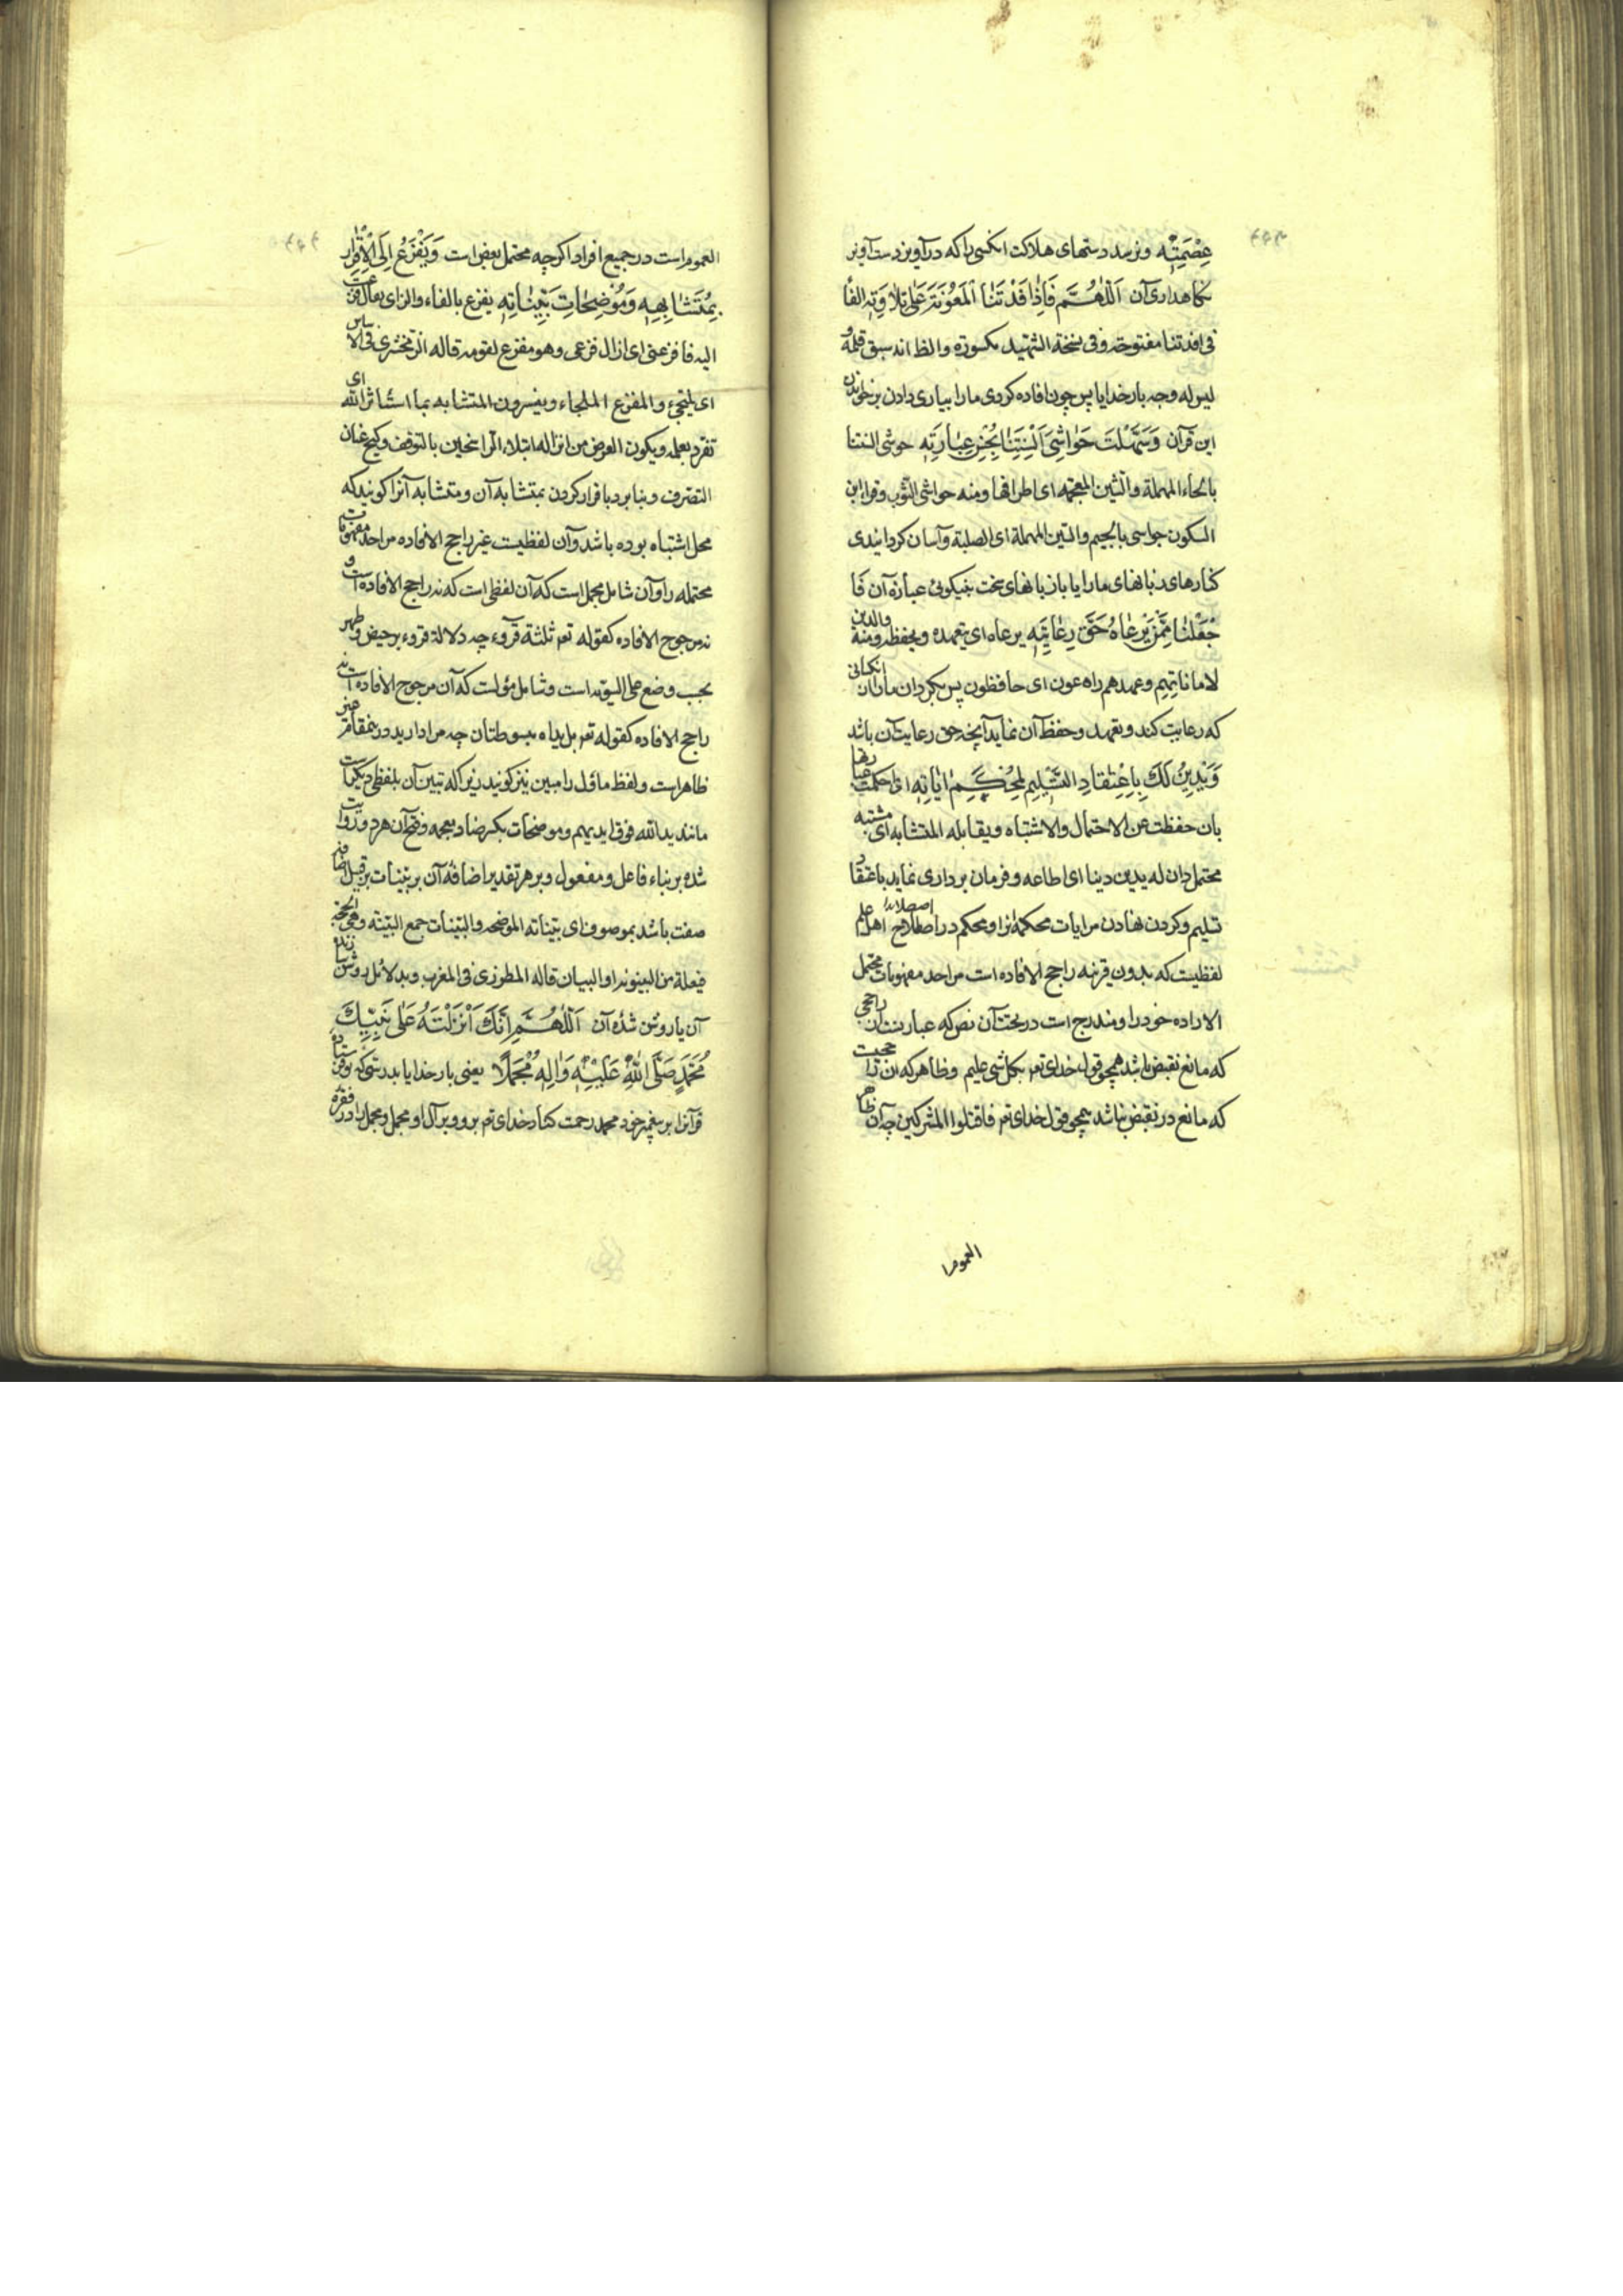 عِصْمَتِهِ و نرسد دستهای هلاکت انکسی را که درآویزد بدست آویز
نکاهداری آن اَللّهُمَّ فَاِذْ اَفَدْتَنَا الْمَعُونَةَ عَلی تِلاوَتِهِ الفا
فی افدتنا مفتوحة و فی نسخة الشهید مکسورة و الظ انه سبق قلم و
لیس له وجه بار خدایا پس چون افاده کردی ما را بیاری دادن بر خواندن
این قرآن وَسَهَّلْتَ حَوَاشِیَ اَلْسِنَتِنَا بِحُسْنِ عِبَارَتِهِ حوشی السنتنا
بالحاء المهملة و الشین المعجمه ای اطرافها و منه حواشی الثوب و قرا ابن
السکون جواسی بالجیم و السین المهملة ای الصلبة و آسان کردانیدی
کنارهای زبانهای ما را یا زبانهای سخت بنیکوئی عبارة آن فَا
جْعَلْنَا مِمَّنْ یَرْعَاهُ حَقَّ رِعَایَتِهِ یرعاه ای یتعهده و یحفظه و منه والذین
لاماناتهم و عهدهم راعون ای حافظون پس بکردان ما را از آنکسانی
که رعایت کند و تعهد و حفظ آن نماید آنچه حق رعایت آن باشد
وَیَدِینُ لَکَ بِاِعْتِقَادِ التَّسْلِیمِ لِمُحْکَمِ ایَاتِهِ ای احکمت عباراتها
بان حفظت عن الاحتمال و الاشتباه و یقابله المتشابه ای مشتبه
محتمل دان له یدین دینا ای اطاعه و فرمان برداری نماید باعتقاد
تسلیم و کردن نهادن مر ایات محکمۀ ترا و محکم در اصطلاح اهل علم
لفظیست که بدون قرینه راجح الافاده است مر احد مفهومات محتمل
الاراده خود را و مندرج است در تحت آن نص که عبارتست از راجحی
که مانع نقیض باشد همچو قول خدای تعم بکل شیء علیم و ظاهر که
که مانع در نقیض نباشد همچو قول خدای تعم فاقتلوا المشرکین چه آن ظاهر
العموم ا
العموم است در جمیع افراد اکرچه محتمل بعض است وَیَفْزَعُ اِلَی الْاِقْرَارِ
بِمُتَشَابِهِهِ وَمُوضِحَاتِ بَیِّنَاتِهِ یفزع بالفاء و الزای یقال فزعت
الیه فافزعنی ای ازال فزعی و هو مفزع لقومه قاله الزمخشری فی الاساس
ای یلتجئ و المفزع الملجاء و یفسرون المتشابه بما استأثر الله ای
تفرد بعلمه و یکون الغرض من انزاله ابتلاء الراسخین بالتوقف و کبح عنان
التصرف و پناه برد باقرار کردن بمتشابه آن و متشابه آنرا کویند که
محل اشتباه بوده باشد و آن لفظیست غیر راجح الافاده مر احد مفهومات
محتمله را و آن شامل مجمل است که آن لفظی است که نه راجح الافاده است و
نه مرجوح الافاده کقوله تعم ثلثة قروء چه دلالة قروء بر حیض و طهر
بحسب وضع علی السویه است و شامل مؤلست که آن مرجوح الافاده است نه
راجح الافاده کقوله تعم بل یداه مبسوطتان چه مراد از ید در
ظاهر است و لفظ ماؤل را مبین نیز کویند زیرا که تبیین آن بلفظی دیکر است
مانند ید الله فوق ایدیهم و موضحات بکسر ضاد معجمه و فتح آن هر دو روایت
شده بر بناء فاعل و مفعول و بر هر تقدیر اضافۀ آن بر بینات از قبیل اضافۀ
صفت باشد بموصوف ای بیناته الموضحه و البینات جمع البینة و هی الحجة
فیعلة من البینونة او البیان قاله المطرزی فی المغرب و بدلائل روشن سازنده
آن یا روشن شدۀ آن اَللّهُمَّ اِنَّکَ اَنْزَلْتَهُ عَلی نَبِیِّکَ
مُحَمَّدٍ صَلَّی اللهُ عَلَیْهِ وَالِهِ مُجْمَلًا یعنی بار خدایا بدرستی که تو فرستاده
قرآنرا بر پیغمبر خود محمد رحمت کناد خدای تعم بر او و بر آل او مجمل و مجمل را در فقره